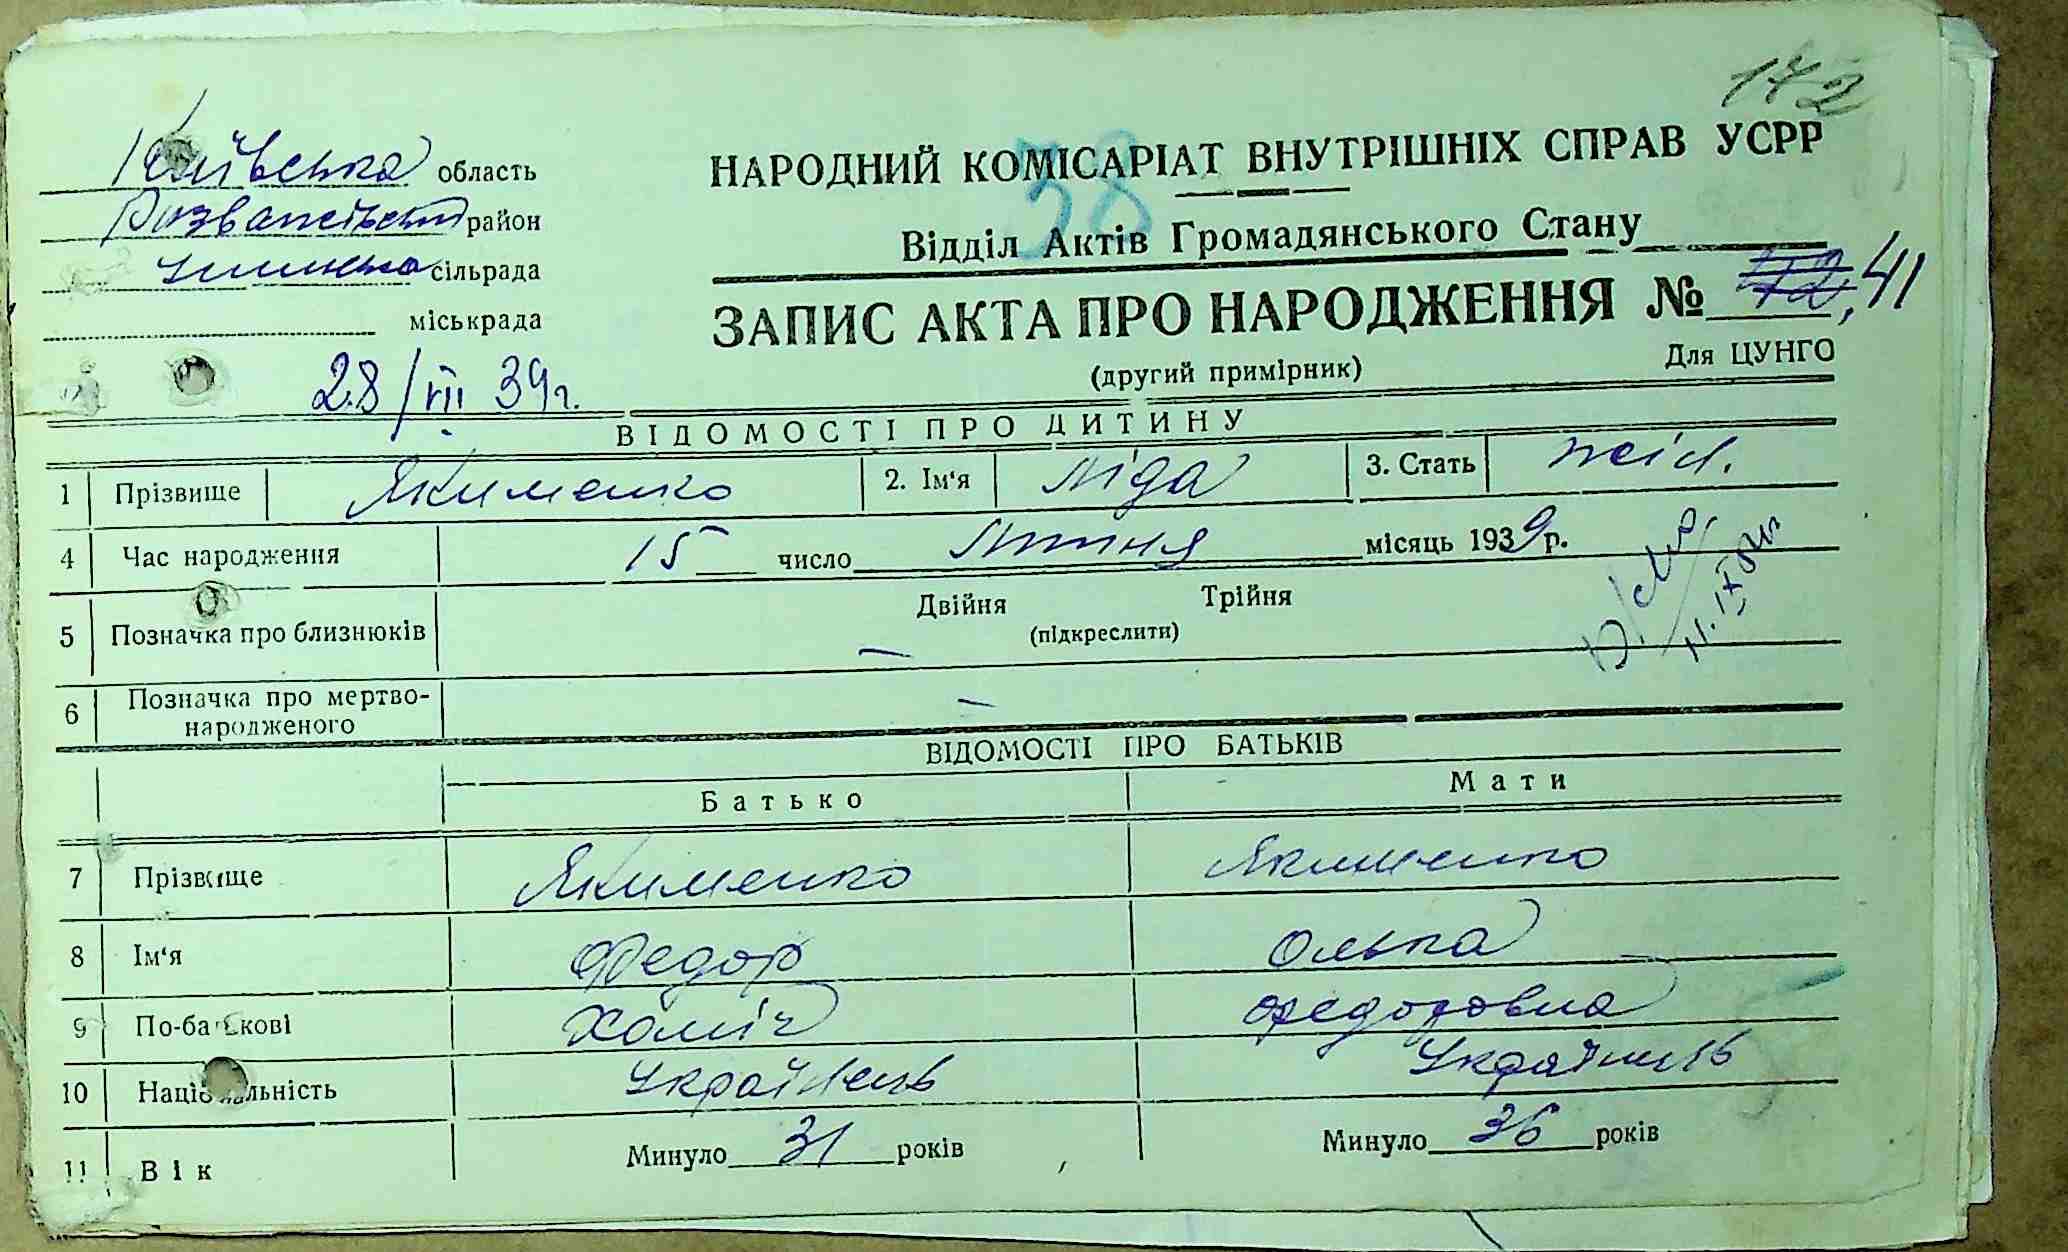 142
38
Київська область
Розважівський район
сільрада
міськрада
28/VII 39 г.
НАРОДНИЙ КОМІСАРІАТ ВНУТРІШНІХ СПРАВ УСРР
Відділ Актів Громадянського Стану
ЗАПИС АКТА ПРО НАРОДЖЕННЯ № 41
(другий примірник)
Для ЦУНГО
ВІДОМОСТІ ПРО ДИТИНУ
1 Прізвище Якименко 2. Ім'я Ліда 3. Стать жін.
4 Час народження 15 число липня місяць 1939 р.
5 Позначка про близнюків Двійня Трійня
(підкреслити)
6 Позначка про мертво-
народженого
ВІДОМОСТІ ПРО БАТЬКІВ
Батько Мати
7 Прізвище Якименко Якименко
8 Ім'я Федор Олька
9 По-батькові Хоміч Федоровна
10 Національність Українець Українець
11 Вік Минуло 31 років Минуло 36 років